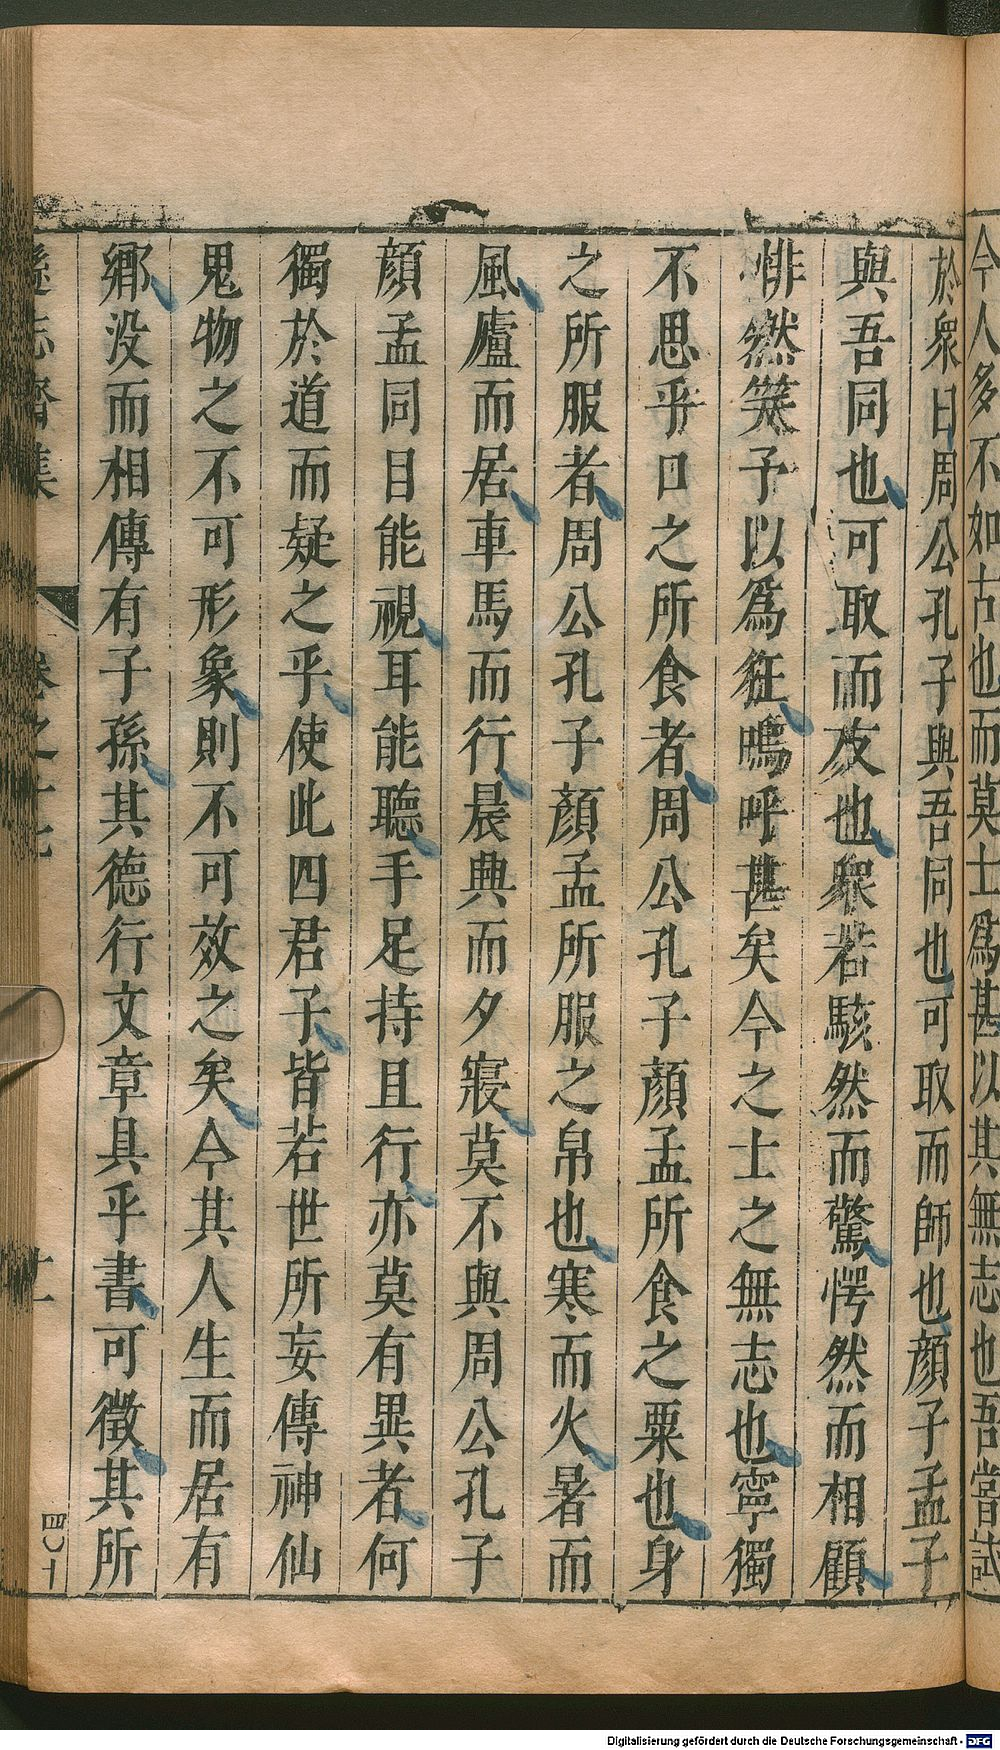 今人多不如古也而莫士爲甚以其無志也吾嘗試
於衆曰周公孔子與吾同也可取而師也顔子孟子
與吾同也可取而友也衆若駭然而驚愕然而相顧
悱然笑予以爲狂嗚呼甚矣今之士之無志也寧獨
不思乎口之所食者周公孔子顔孟所食之粟也身
之所服者周公孔子顔孟所服之帛也寒而火暑而
風廬而居車馬而行晨興而夕寢莫不與周公孔子
顔孟同目能視耳能聽手足持且行亦莫有異者何
獨於道而疑之乎使此四君子皆若世所妄傳神仙
鬼物之不可形象則不可效之矣今其人生而居有
鄉没而相傳有子孫其德行文章具乎書可徵其所
遜志齋集
卷之十七
十一
四〇十
Digitalisierung gefördert durch die Deutsche Forschungsgemeinschaft - DFG